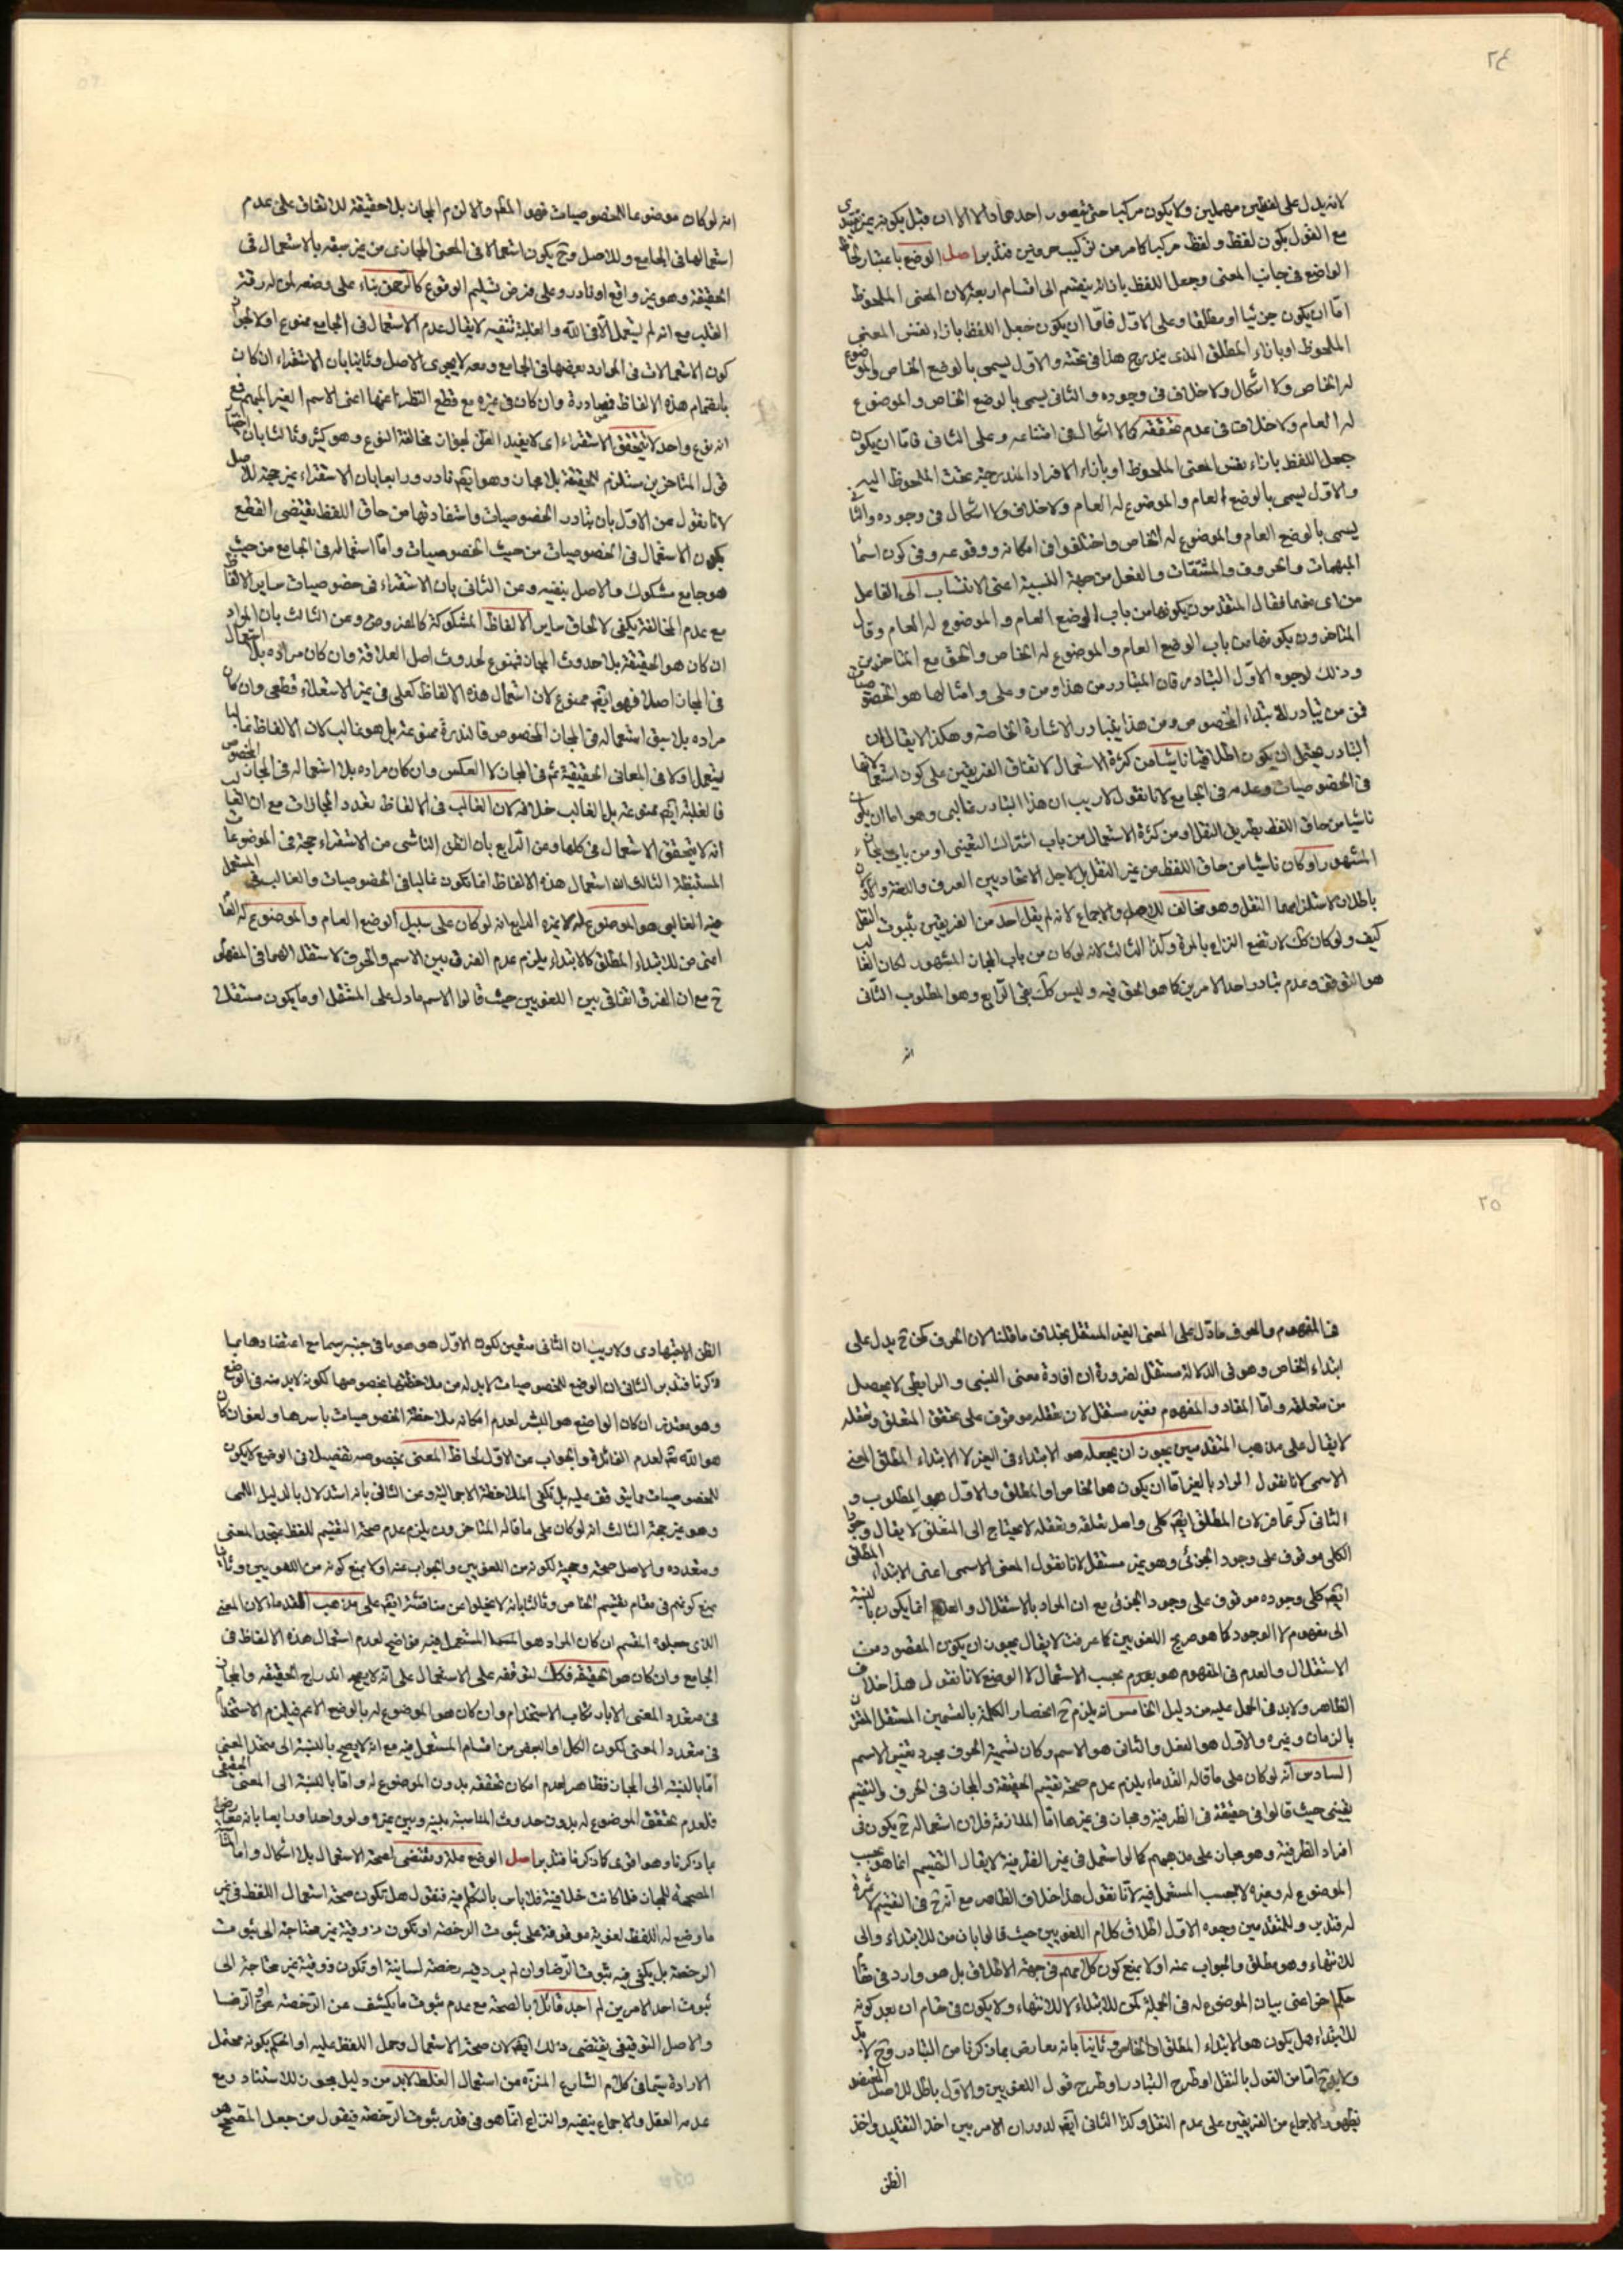 ٢٤
لانه يدل على لفظين مهملين ولا يكون مركبا حتى يتصور احدهما والا الا ان قيل يكونه يزيد
مع القول بكون لفظ ولفظ مركبا كامر من تركيب حرفين فتدبر اصل الوضع باعتبار لحاظ
الواضع في جانب المعنى وجعل اللفظ بازائه ينقسم الى اقسام اربعة لان المعنى الملحوظ
امّا ان يكون جزئيا او مطلقا وعلى الاوّل فامّا ان يكون جعل اللفظ بازاء نفس المعنى
الملحوظ او بازاء المطلق الذى يندرج هذا في تحته والاول يسمى بالوضع الخاص والموضوع
له الخاص ولا اشكال ولا خلاف في وجوده والثاني يسمى بالوضع الخاص والموضوع
له العام ولا خلاف في عدم تحققه كما لا اشكال في امتناعه وعلى الثانى فامّا ان يكون
جعل اللفظ بازاء نفس المعنى الملحوظ او بازاء الافراد المندرجة تحت الملحوظ اليه
والاوّل يسمى بالوضع العام والموضوع له العام ولا خلاف ولا اشكال في وجوده والثا
يسمى بالوضع العام والموضوع له الخاص واختلفوا في امكانه ووقوعه وفي كون اسما
المبهمات والحروف والمشتقات والفعل من جهة النسبة اعنى الانتساب الى الفاعل
من اى منهما فقال المتقدمون بكونها من باب الوضع العام والموضوع له العام وقال
المتاخرون بكونها من باب الوضع العام والموضوع له الخاص والحق مع المتاخرين
وذلك لوجوه الاوّل التبادر فان المتبادر من هذا ومن وعلى وامثالها هو الخصوصيات
فمن من يتبادر الابتداء الخصوص ومن هذا يتبادر الاشارة الخاصة وهكذا لا يقال ان
التبادر يحتمل ان يكون اطلاقيا ناشيا من كثرة الاستعمال لاتفاق الفريقين على كون استعمالاتها
في الخصوصيات وعدمه في الجامع لانا نقول لا ريب ان هذا التبادر غالبى وهو اما ان يكون
ناشيا من حاق اللفظ بطريق النقل او من كثرة الاستعمال من باب اشتراك التعينى او من باب مجاز
المشهور او كان ناشيا من حاق اللفظ من غير النقل بل لاجل الاتحاد بين العرف واللغة والاوّلان
باطلان لاستلزامهما النقل وهو مخالف للاصل والاجماع لانه لم يقل احد من الفريقين بثبوت النقل
كيف ولو كان كك لارتفع النزاع بالمرة وكذا الثالث لانه لو كان من باب المجاز المشهور لكان الغالب
هو التوقف وعدم تبادر احد الامرين كما هو الحق فيه وليس كك بقى الرابع وهو المطلوب الثانى
انه
انه لو كان موضوعا للخصوصيات فهو المطم والا لزم المجاز بلا حقيقة للاتفاق على عدم
استعمالها في الجامع وللاصل وح يكون استعمالا في المعنى المجازى من غير سبقه بالاستعمال في
الحقيقة وهو غير واقع او نادر وعلى فرض تسليم الوقوع كالرحمن بناء على وضعه لمن له رقة
القلب مع انه لم يستعمل الّا في اللّه والغلبة تنفيه لا يقال عدم الاستعمال في الجامع ممنوع اولا لجواز
كون الاستعمالات في الموارد بعضها في الجامع ومعه لا يجرى الاصل وثانيا بان الاستقراء ان كان
بانضمام هذه الالفاظ فمصادرة وان كان في غيره مع قطع النظر عنها اعنى الاسم الغير المبهم فمع
انه نوع واحد لا يتحقق الاستقراء اى لا يفيد الظن لجواز مخالفة النوع وهو كثير وثالثا بان
قول المتاخرين مستلزم للحقيقة بلا مجاز وهو ايضا نادر ورابعا بان الاستقراء غير حجة للاصل
لانا نقول عن الاوّل بان تبادر الخصوصيات واستفادتها من حاق اللفظ يقتضى القطع
بكون الاستعمال في الخصوصيات من حيث الخصوصيات وامّا استعماله في الجامع من حيث
هو جامع مشكوك والاصل ينفيه وعن الثانى بان الاستقراء في خصوصيات ساير الالفاظ
مع عدم المخالفة يكفى لالحاق ساير الالفاظ المشكوكة كالمفروض وعن الثالث بان المراد
ان كان هو الحقيقة بلا حدوث المجاز فممنوع لحدوث اصل العلاقة وان كان مراده بلا استعمال
في المجاز اصلا فهو ايضا ممنوع لان استعمال هذه الالفاظ كعلى في غير الاستعلاء قطعى وان كان
مراده بلا سبق استعماله في المجاز المخصوص فالندرة ممنوعة بل هو غالب لان الالفاظ غالبا
يستعمل اولا في المعانى الحقيقية ثم في المجازات لا العكس وان كان مراده بلا استعماله في المجاز المخصوص
فالغلبة ايضا ممنوعة بل الغالب خلافه لان الغالب في الالفاظ تعدد المجازات مع ان الغالب
انه لا يتحقق الاستعمال في كلها وعن الرابع بان الظن الناشى من الاستقراء حجة في الموضوعات
المستنبطة الثالث ان استعمال هذه الالفاظ انما تكون غالبا في الخصوصيات والغالب في المستعمل
فيه الغالبى هو الموضوع له لا غيره الرابع انه لو كان على سبيل الوضع العام والموضوع له العام
اعنى من للابتداء المطلق كالابتداء يلزم عدم الفرق بين الاسم والحرف لاستقلالهما في المفهوم
ح مع ان الفرق اتفاقى بين اللغويين حيث قالوا الاسم مادل على المستقل او ما يكون مستقلا
٢٥
في المفهوم والحرف مادّل على المعنى الغير المستقل بخلاف ما قلنا لان الحرف كمن ح يدل على
ابتداء الخاص وهو في الدلالة مستقل لضرورة ان افادة معنى النسبى والرابطى لا يحصل
من متعلقه وامّا المفاد والمفهوم فغير مستقل لان تعقله موقوف على تحقق المتعلق وتعقله
لا يقال على مذهب المتقدمين يجوز ان يجعله هو الابتداء في الغير لا الابتداء المطلق المعنى
الاسمى لانا نقول المراد بالغير امّا ان يكون هو الخاص او المطلق والاوّل هو المطلوب و
الثانى كرّ عما فرّ لان المطلق ايضا كلى واصل تعلقه وتعقله لا يحتاج الى المتعلق لا يقال وجود
الكلى موقوف على وجود الجزئى وهو غير مستقل لانا نقول المعنى الاسمى اعنى الابتداء المطلق
ايضا كلى وجوده موقوف على وجود الجزئى مع ان المراد بالاستقلال والعدم انما يكون بالنسبة
الى مفهوم لا الوجود كما هو صريح اللغويين كما عرفت لا يقال يجوز ان يكون المقصود من
الاستقلال والعدم في المفهوم هو بعدم بحسب الاستعمال لا الوضع لانا نقول هذا خلاف
الظاهر ولابد في الحمل عليه من دليل الخامس انه يلزم ح انحصار الكلمة بالقسمين المستقل المقترن
بالزمان وغيره والاوّل هو الفعل والثانى هو الاسم وكان تسمية الحرف مجرد تغيير الاسم
السادس انه لو كان على ما قاله القدماء يلزم عدم صحة تقسيم الحقيقة والمجاز في الحرف والتقسيم
يقينى حيث قالوا في حقيقة في الظرفية ومجاز في غيرها امّا الملازمة فلان استعماله ح يكون في
افراد الظرفية وهو مجاز على مذهبهم كما لو استعمل في غير الظرفية لا يقال التقسيم انما هو بحسب
الموضوع له وغيره لا بحسب المستعمل فيه لانا نقول هذا خلاف الظاهر مع انه ح في التقسيم لا ثمرة
له فتدبر وللمتقدمين وجوه الاوّل اطلاق كلام اللغويين حيث قالوا بان من للابتداء والى
للانتهاء وهو مطلق والجواب عنه اولا بمنع كون كلامهم في جهة الاطلاق بل هو وارد في مقام
حكم اخر اعنى بيان الموضوع له في الجملة كمن للابتداء لا للانتهاء ولا يكون في مقام ان بعد كونه
للابتداء هل يكون هو الابتداء المطلق او الخاص وثانيا بانه معارض بما ذكرنا من التبادر وح لابد
ولا يرجح امّا من القول بالنقل او طرح التبادر او طرح قول اللغويين والاوّل باطل للاصل
بظهور الاجماع من الفريقين على عدم النقل وكذا الثانى ايضا لدوران الامر بين اخذ التقليد واخذ
الظن
الظن الاجتهادى ولا ريب ان الثانى متعين لكون الاوّل هو هوما في جنبه سيما مع اعتضادها بما
ذكرنا فتدبر الثانى ان الوضع للخصوصيات لابد له من ملاحظتها بخصوصها لكونه لابد منه في الوضع
وهو متعذر ان كان الواضع هو البشر لعدم امكانه ملاحظة الخصوصيات باسرها ولغو ان كان
هو اللّه تعالى لعدم الفائدة والجواب عن الاوّل لحاظ المعنى بخصوصه تفصيلا في الوضع لا يكون
للخصوصيات مما يتوقف عليه بل تكفى الملاحظة الاجمالية وعن الثانى بانه استدلال بالدليل اللمى
وهو غير حجة الثالث انه لو كان على ما قاله المتاخرون يلزم عدم صحة التقسيم للفظ بمتحد المعنى
ومتعدده والاصل صحته وحجية لكونه من اللغويين والجواب عنه اولا بمنع كونه من اللغويين وثانيا
بمنع كونهم في مقام تقسيم الخاص وثالثا بانه لا يخلوا عن مناقشة ايضا على مذهب القدماء لان المعنى
الذى جعلوه المقسم ان كان المراد هو المستعمل فيه فواضح لعدم استعمال هذه الالفاظ في
الجامع وان كان هو الحقيقة فكك لتوقفه على الاستعمال على انه لا يصح اندراج الحقيقة والمجاز
في متعدد المعنى الا بارتكاب الاستخدام وان كان هو الموضوع له بالوضع الاعم فيلزم الاستخدام
في متعدد المعنى لكون الكل او البعض من اقسام المستعمل فيه مع انه لا يصح بالنسبة الى متحد المعنى
امّا بالنسبة الى المجاز فظاهر لعدم امكان تحققه بدون الموضوع له وامّا بالنسبة الى المعنى الحقيقى
فلعدم تحقق الموضوع له بدون حدوث المناسبة بينه وبين غيره ولو واحدا ورابعا بانه معارض
بما ذكرنا وهو اقوى كما ذكرنا فتدبر اصل الوضع علة ومقتضى لصحة الاستعمال بلا اشكال وامّا
المصححة للمجاز فلما كانت خلافية فلا باس بالتكلم فيه فنقول هل تكون صحة استعمال اللفظ في غير
ما وضع له اللفظ لغوية موقوفة على ثبوت الرخصة او تكون ذوقية غير محتاجة الى ثبوت
الرخصة بل يكفى فيه ثبوت الرضا وان لم يرد فيه رخصة لسانية او تكون ذوقية غير محتاجة الى
ثبوت احد الامرين لم اجد قائلا بالصحة مع عدم ثبوت ما يكشف عن الرخصة او الرضا
والاصل التوقيفى يقتضى ذلك ايضا لان صحة الاستعمال وحمل اللفظ عليه او الحكم بكونه محتمل
الارادة سيّما في كلام الشارع المنزّه من استعمال الغلط لابد من دليل يجوز للاستناد ومع
عدمه العقل والاجماع ينفيه والنزاع انمّا هو في قدر ثبوت الرخصة فيقول من جعل المصحح